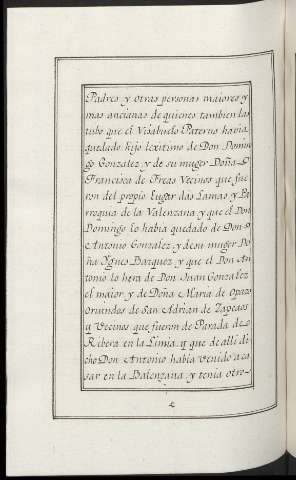 Padres y otras personas maiores y
mas ancianas de quienes tambien las
tubo que el Visabuelo Paterno havia
quedado hijo lexitimo de Don Domin
go Gonzalez y de su muger Doña
Francisca de Freas Vecinos que fue
ron del propio Lugar das Lamas y Pa
rroquia de la Valenzana y que el Don
Domingo lo habia quedado de Don
Antonio Gonzalez y de su muger Do
ña Ygnes Bazquez y que el Don An
tonio lo hera de Don Juan Gonzalez
el maior y de Doña Maria de Opazo
oriundos de San Adrian de Zapeaos
y Vecinos que fueron de Parada de
Ribera en la Limia, y que de alli di
cho Don Antonio habia venido a ca
sar en la Balenzana y tenia otro